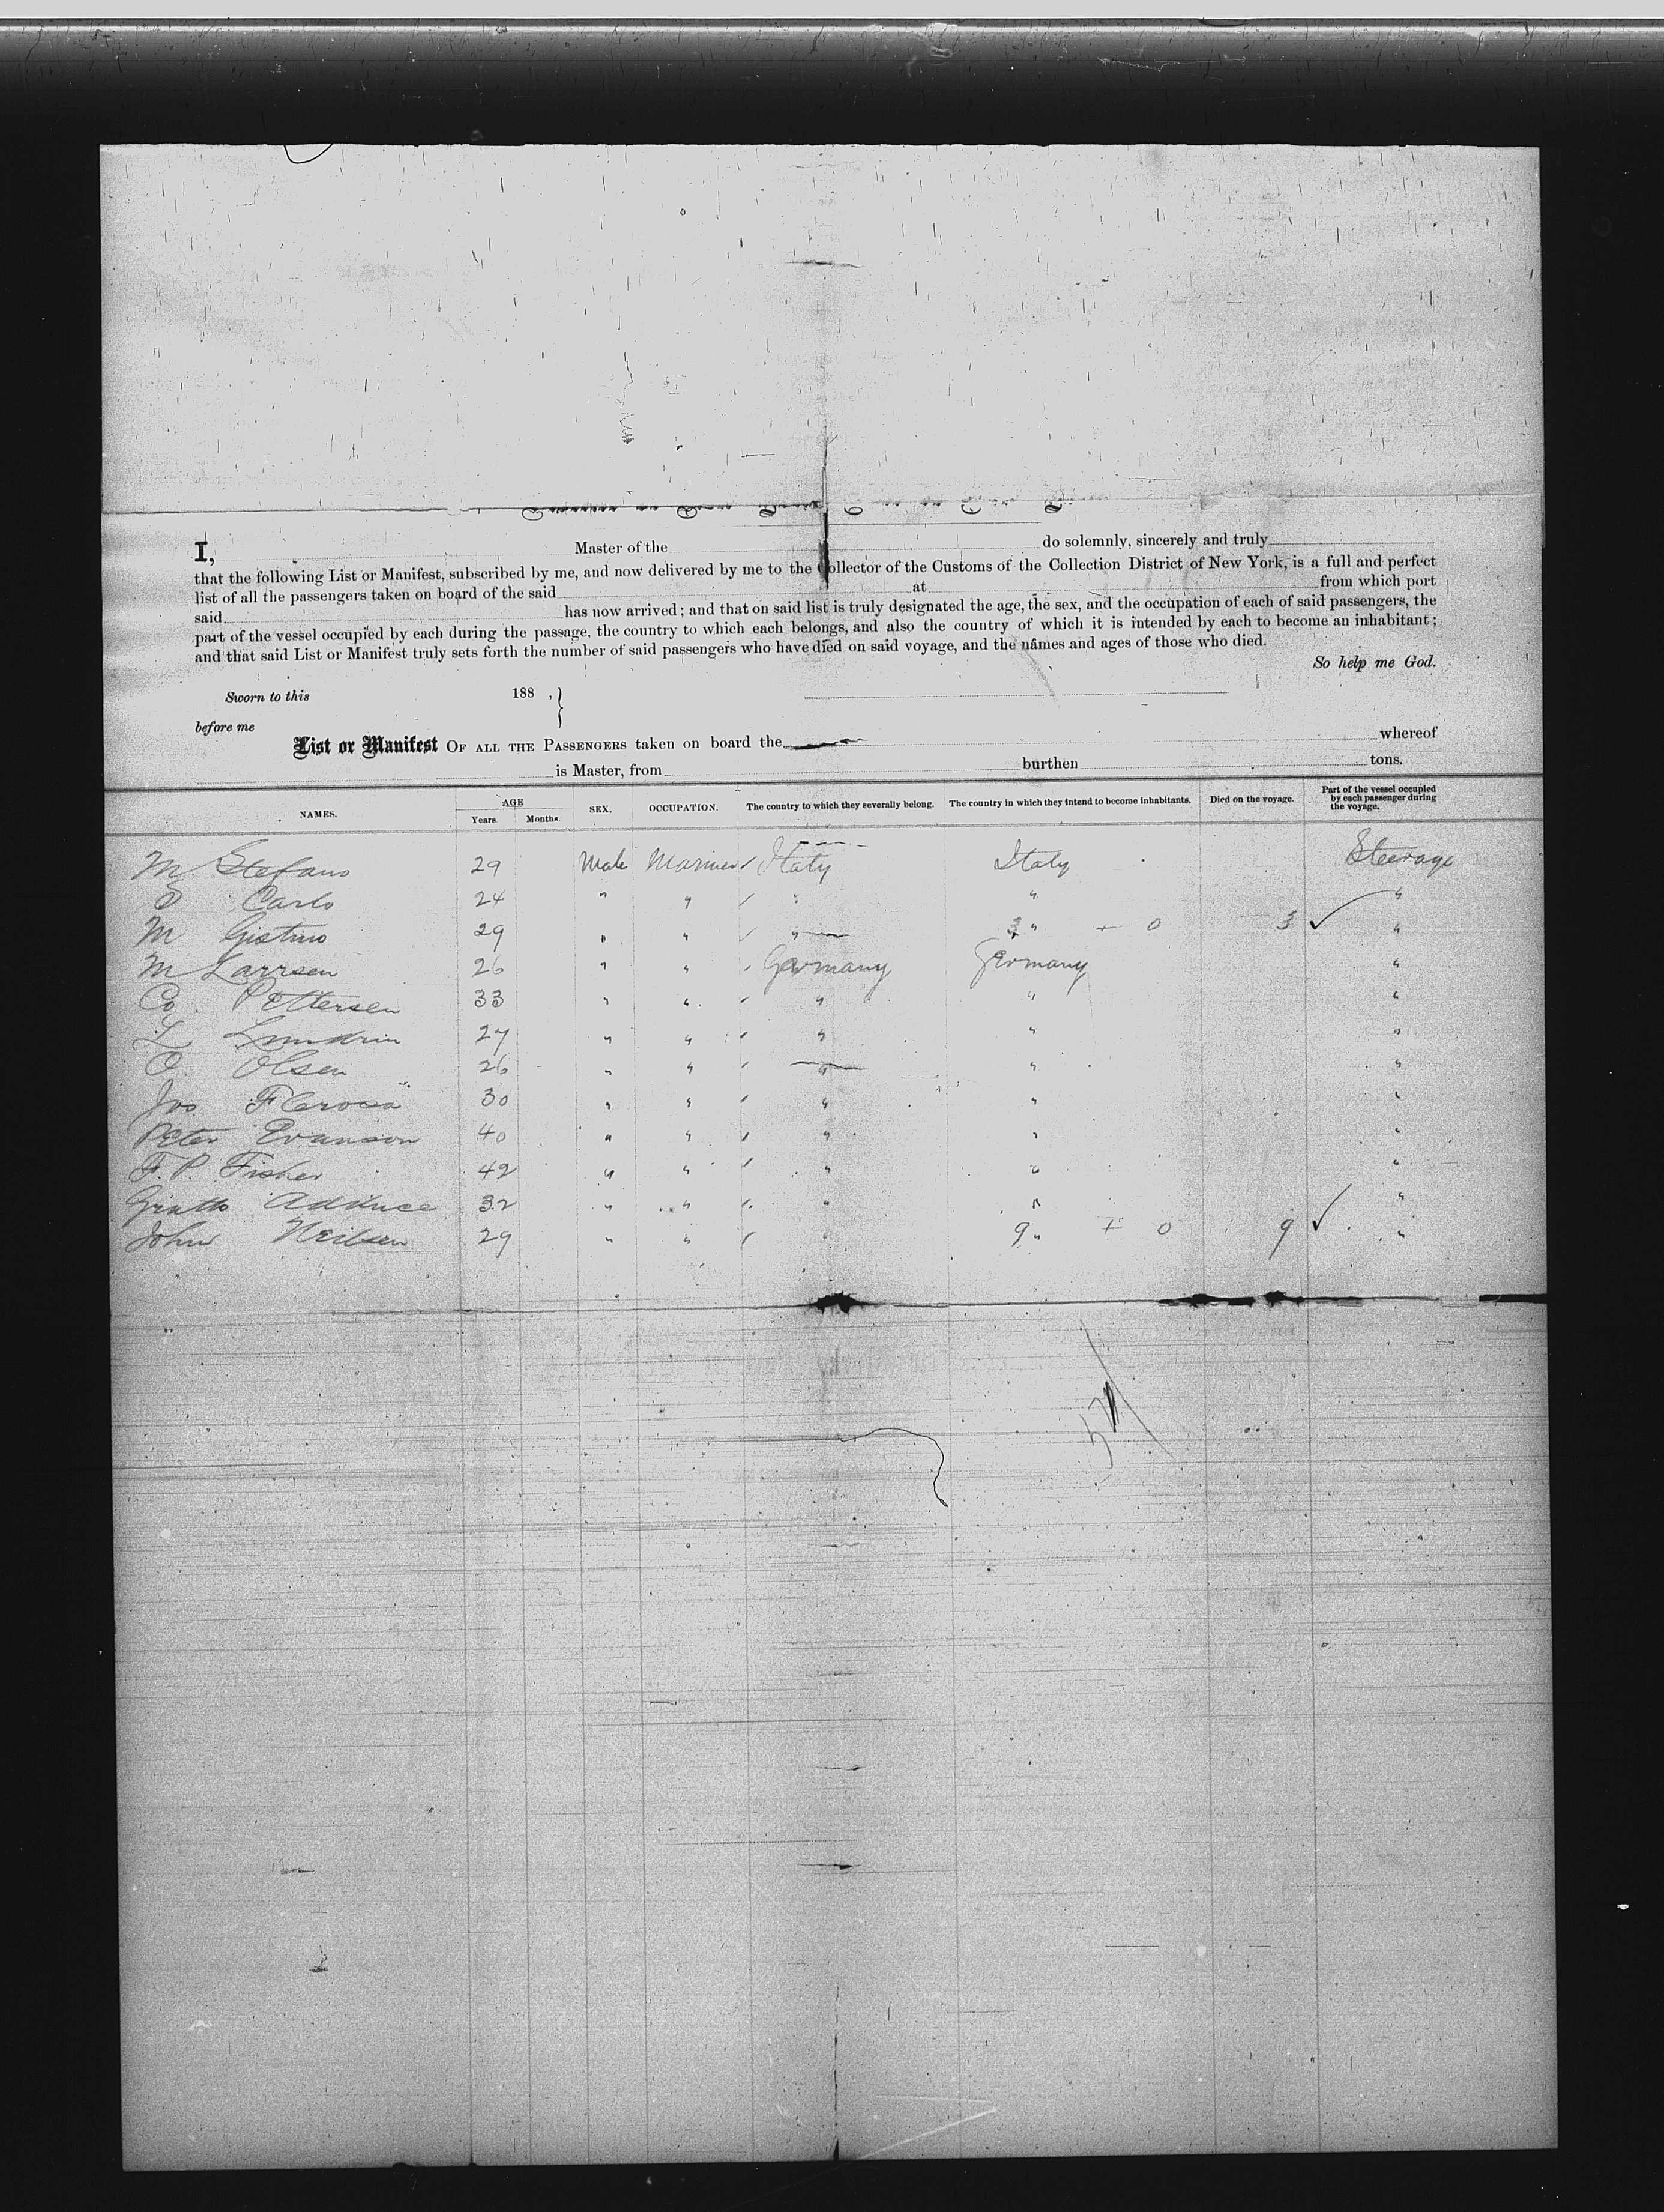 I, Master of the do solemnly, sincerely and truly
that the following List or Manifest, subscribed by me, and now delivered by me to the Collector of the Customs of the Collection District of New York, is a full and perfect
list of all the passengers taken on board of the said at from which port
said has now arrived; and that on said list is truly designated the age, the sex, and the occupation of each of said passengers, the
part of the vessel occupied by each during the passage, the country to which each belongs, and also the country of which it is intended by each to become an inhabitant;
and that said List or Manifest truly sets forth the number of said passengers who have died on said voyage, and the names and ages of those who died.
So help me God.
Sworn to this 188 , }
before me
List or Manifest OF ALL THE PASSENGERS taken on board the whereof
is Master, from burthen tons.
NAMES. AGE Years. Months. SEX. OCCUPATION. The country to which they severally belong. The country in which they intend to become inhabitants. Died on the voyage. Part of the vessel occupied by each passenger during the voyage.
M Stefano 29 Male Mariner Italy Italy Steerage
S Carlo 24 " " " " "
M 29 " " " 3 " + 0 3 ✓ "
M Larrsen 26 " " Germany Germany "
Co. Pettersen 33 " " " " "
L 27 " " " " "
O. Olsen 26 " " " " "
Jos 30 " " " " "
Peter Evanson 40 " " " " "
F. P. Fisher 42 " " " " "
Adduce 32 " " " " "
John Neilsen 29 " " " 9 " + 0 9 ✓ "